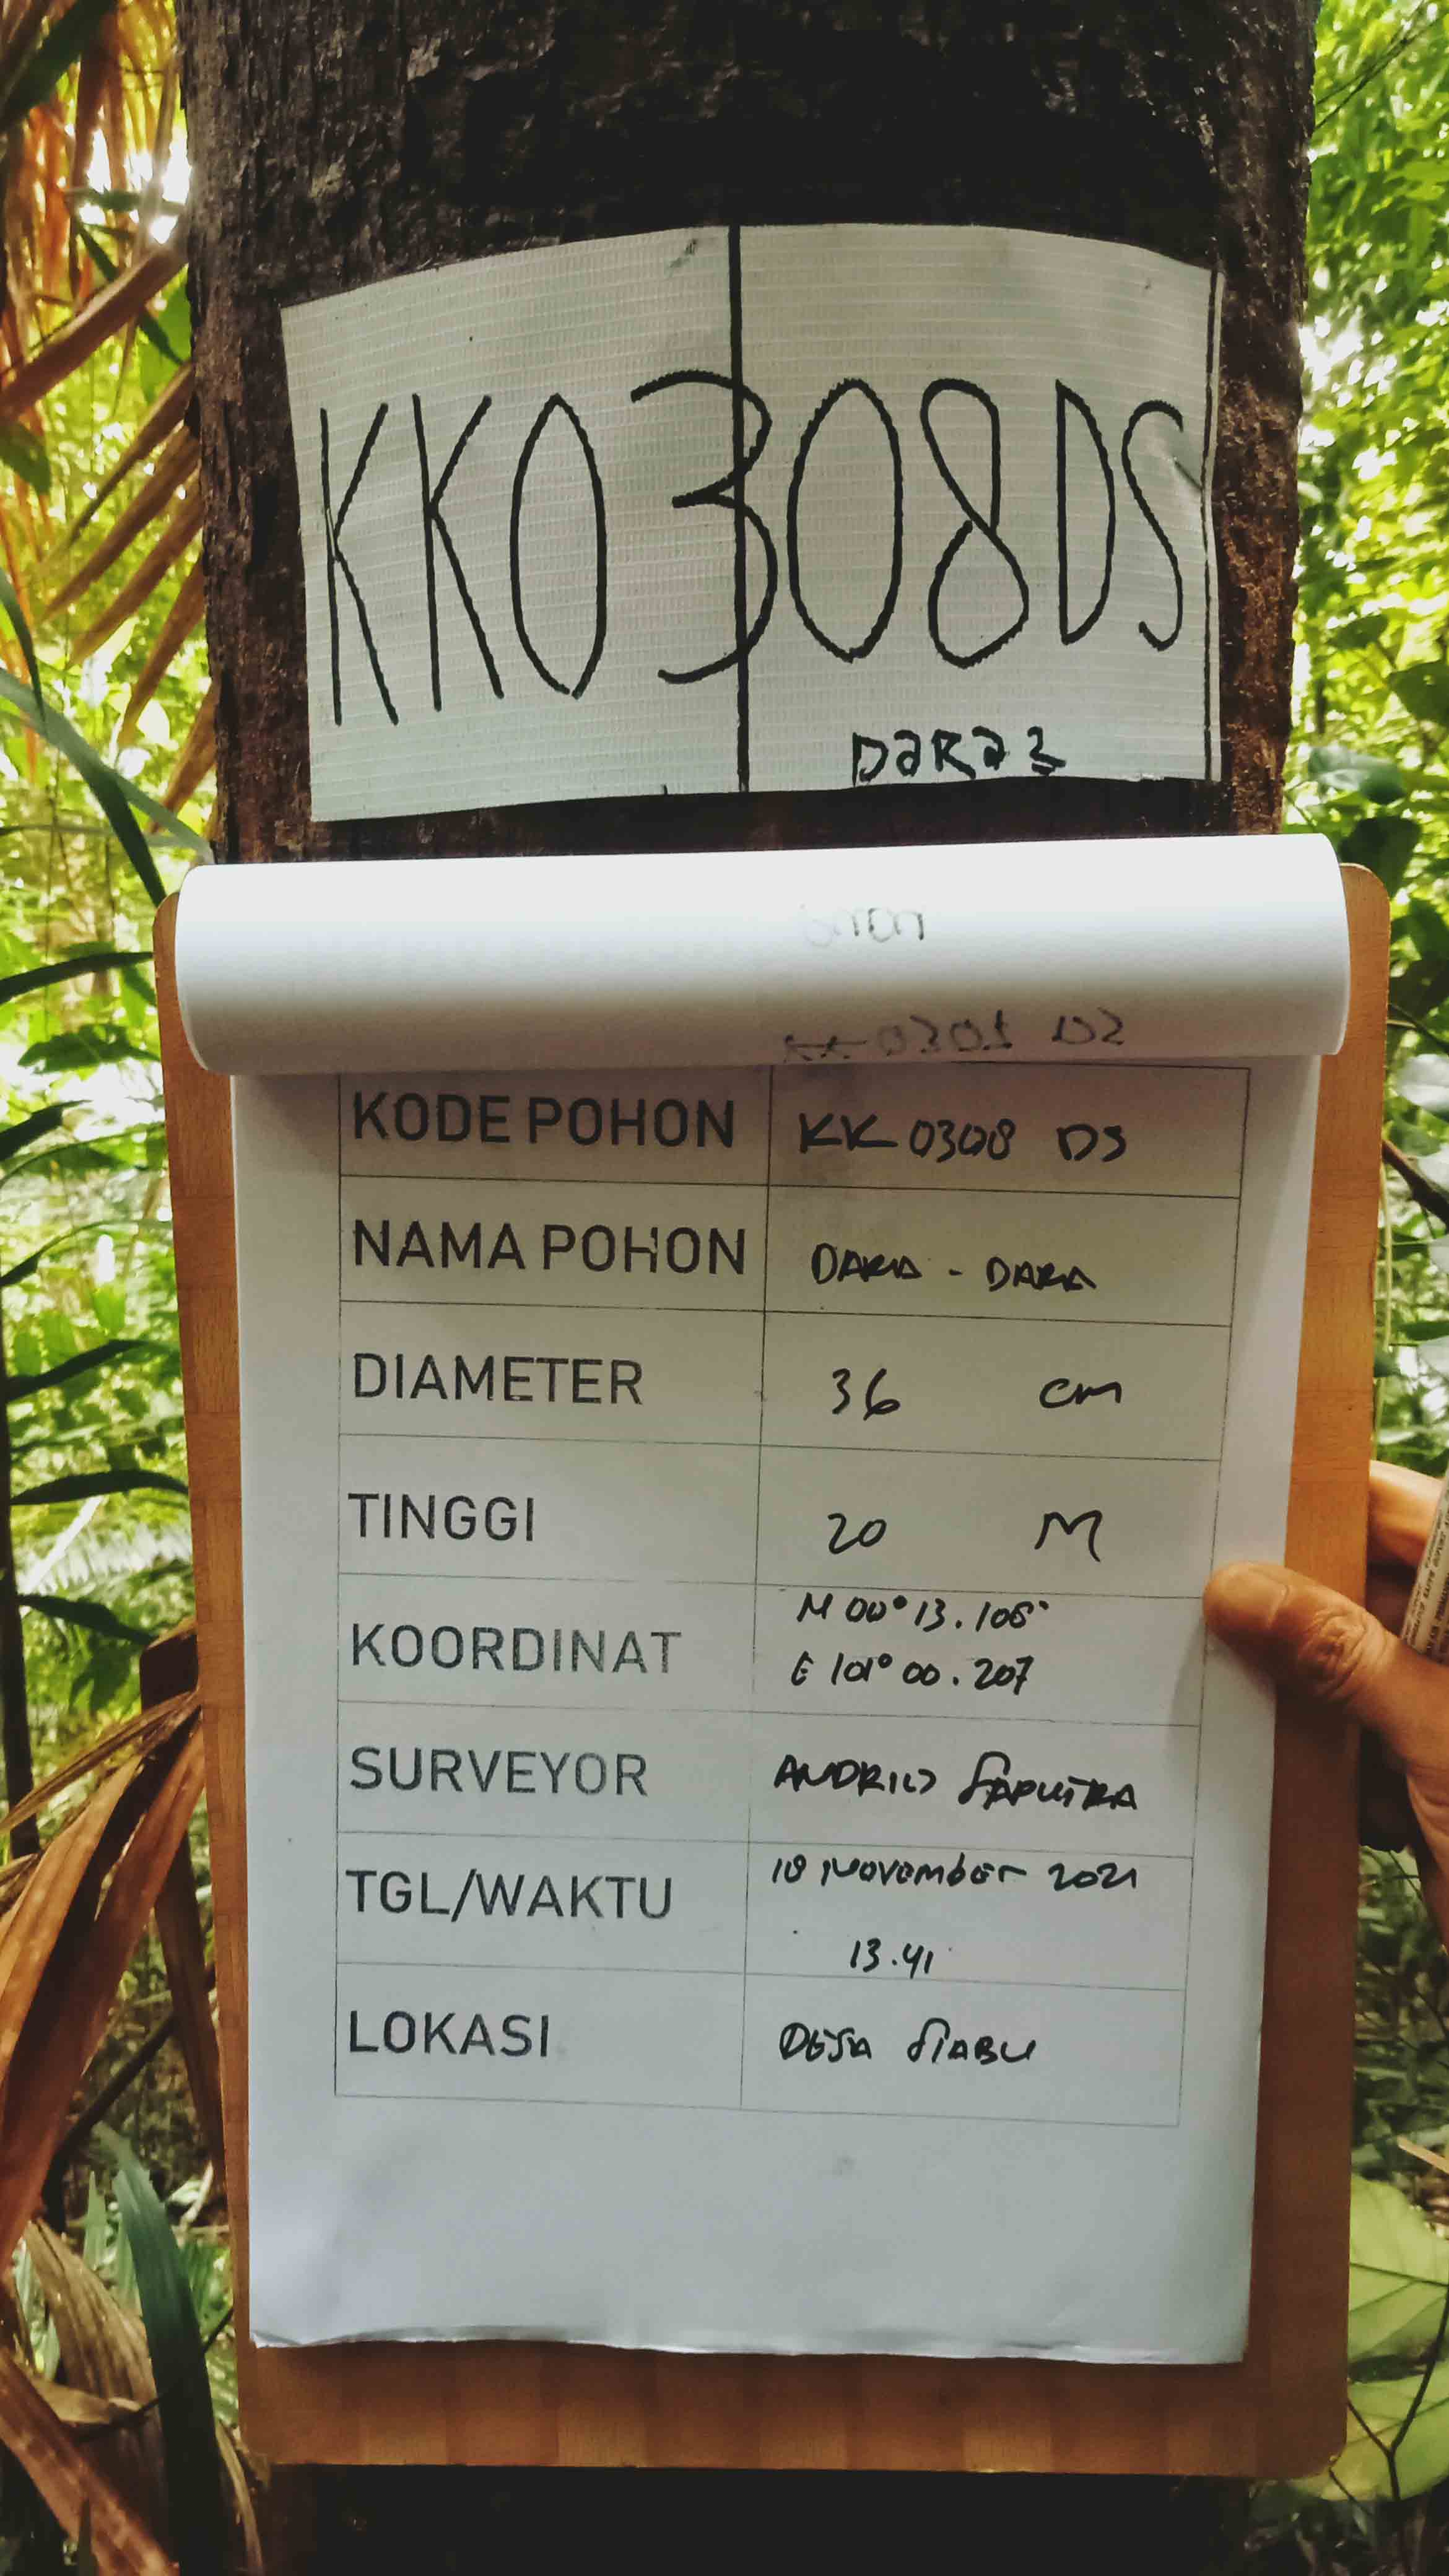 KK0308DS
DaRa2
KODE POHON KK 0308 DS
NAMA POHON DARA - DARA
DIAMETER 36 cm
TINGGI 20 M
KOORDINAT N 00° 13.108'
E 101° 00.207
SURVEYOR SAPUTRA
TGL/WAKTU 18 November 2021
13.41
LOKASI DESA SIABU